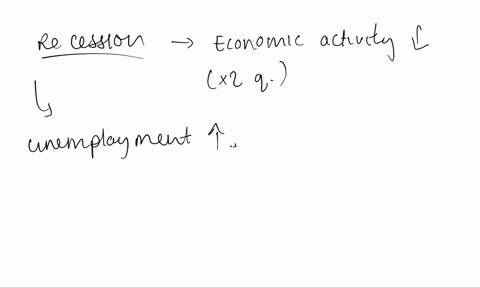 Recession → Economic activity ↓
(x2 q.)
↳
unemployment ↑..